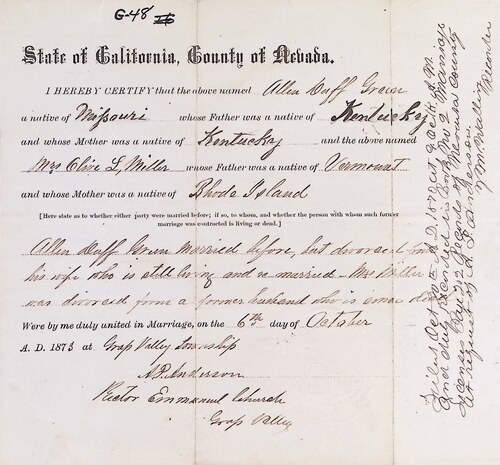 G-48
State of California, County of Nevada.
I HEREBY CERTIFY that the above named Allen Duff Green
a native of Missouri whose Father was a native of Kentucky
and whose Mother was a native of Kentucky and the above named
Mrs Olive L, Miller whose Father was a native of Vermount
and whose Mother was a native of Rhode Island
[Here state as to whether either party were married before; if so, to whom, and whether the person with whom such former
marriage was contracted is living or dead.]
Allen Duff Green married before, but divorced from
his wife who is still living and re-married – Mrs Miller
was divorced from a former husband who is since dead
Were by me duly united in Marriage, on the 6th day of October
A. D. 1873 at Grass Valley Township
A.P. Anderson
Rector Emmanuel Church
Grass Valley
Filed Oct A.D. 1873 at 9 O'clk A.M.
and duly recorded in Book No 2 Marriage
Licenses Page 212 Records of Nevada County
at request of A. P. Anderson
Recorder